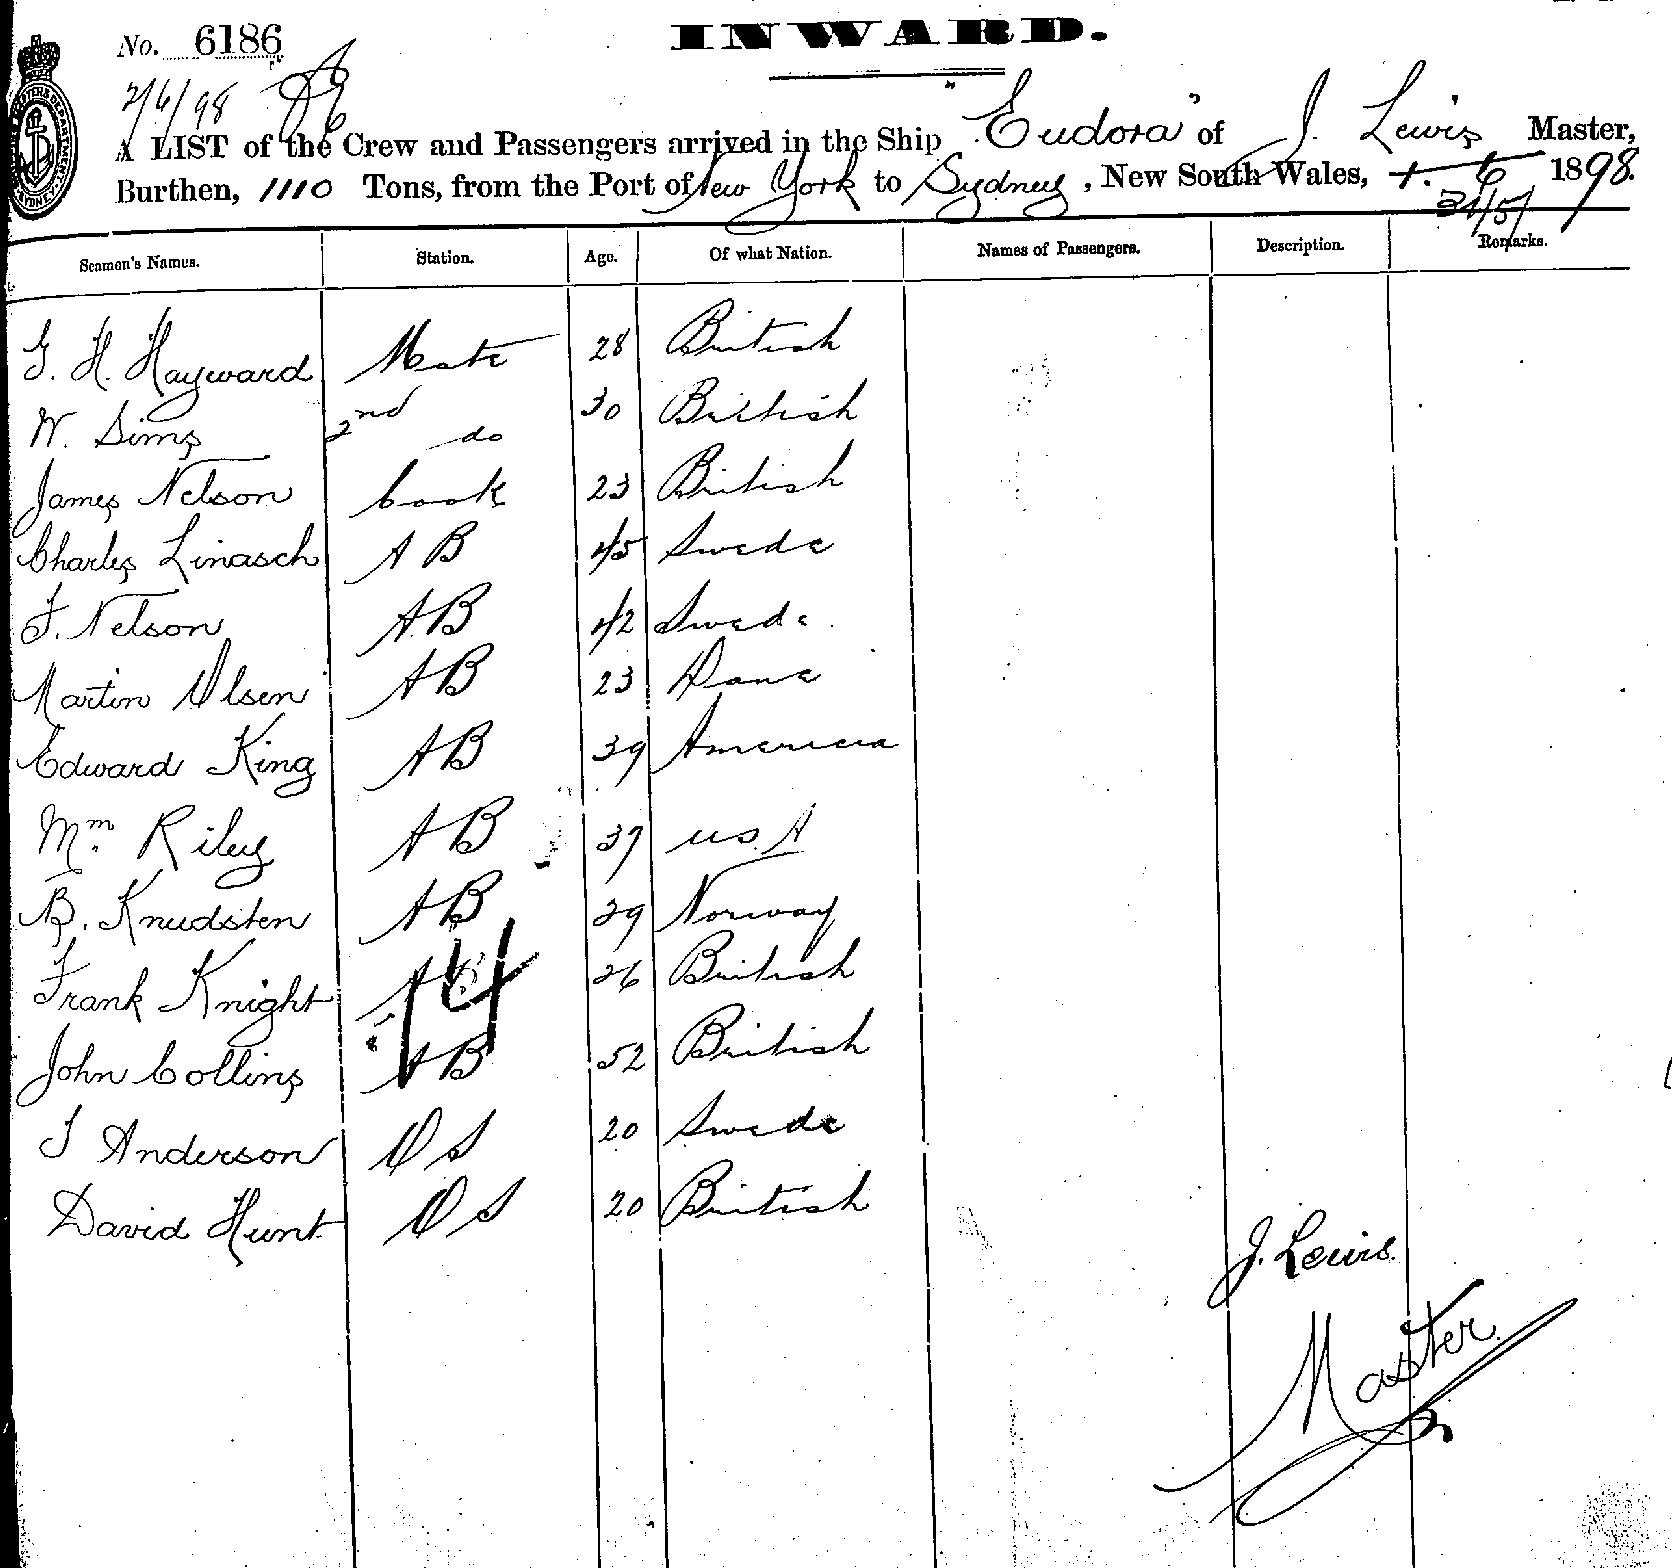 No. 6186
INWARD.
2/6/98
A LIST of the Crew and Passengers arrived in the Ship "Eudora" of J. Lewis Master,
Burthen, 1110 Tons, from the Port of New York to Sydney, New South Wales, 1. 6 1898.
31/5/
Seamen's Names. Station. Age. Of what Nation. Names of Passengers. Description. Remarks.
G. H. Hayward Mate 28 British
W. Sims 2nd do 30 British
James Nelson Cook 23 British
Charles Linasch AB 45 Swede
F. Nelson AB 42 Swede
Martin Olsen AB 23 Dane
Edward King AB 39 Americia
Wm. Riley AB 37 U.S.A
B. Knudsten AB 29 Norway
Frank Knight AB 26 British
14
John Collins AB 52 British
J Anderson OS 20 Swede
David Hunt OS 20 British
J. Lewis.
Master